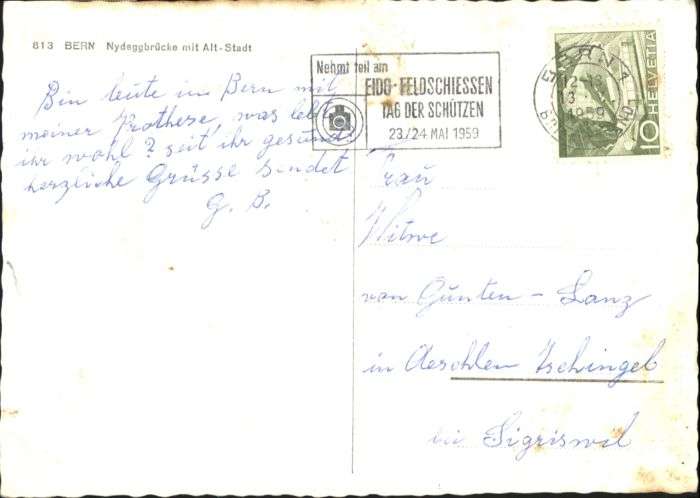 813 BERN Nydeggbrücke mit Alt-Stadt
Nehmt teil am
EIDG. FELDSCHIESSEN
TAG DER SCHÜTZEN
23./24. MAI 1959
BERN 1
1959
HELVETIA
10
Bin heute in Bern mit
meiner Prothese, was lebt
ihr wohl? seit ihr gesund
herzliche Grüsse sendet
G. B.
Frau
Witwe
von Gunten - Lanz
in Aeschlen Tschingel
bei Sigriswil